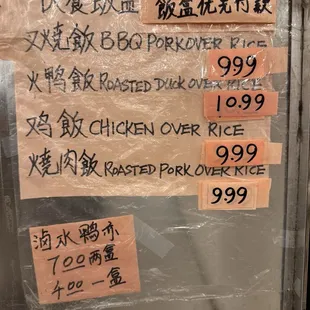 飯盒优先付款
叉燒飯 BBQ PORK OVER RICE
9.99
火鸭飯 ROASTED DUCK OVER RICE
10.99
鸡飯 CHICKEN OVER RICE
9.99
燒肉飯 ROASTED PORK OVER RICE
9.99
滷水鸭亦
7.00 两盒
4.00 一盒